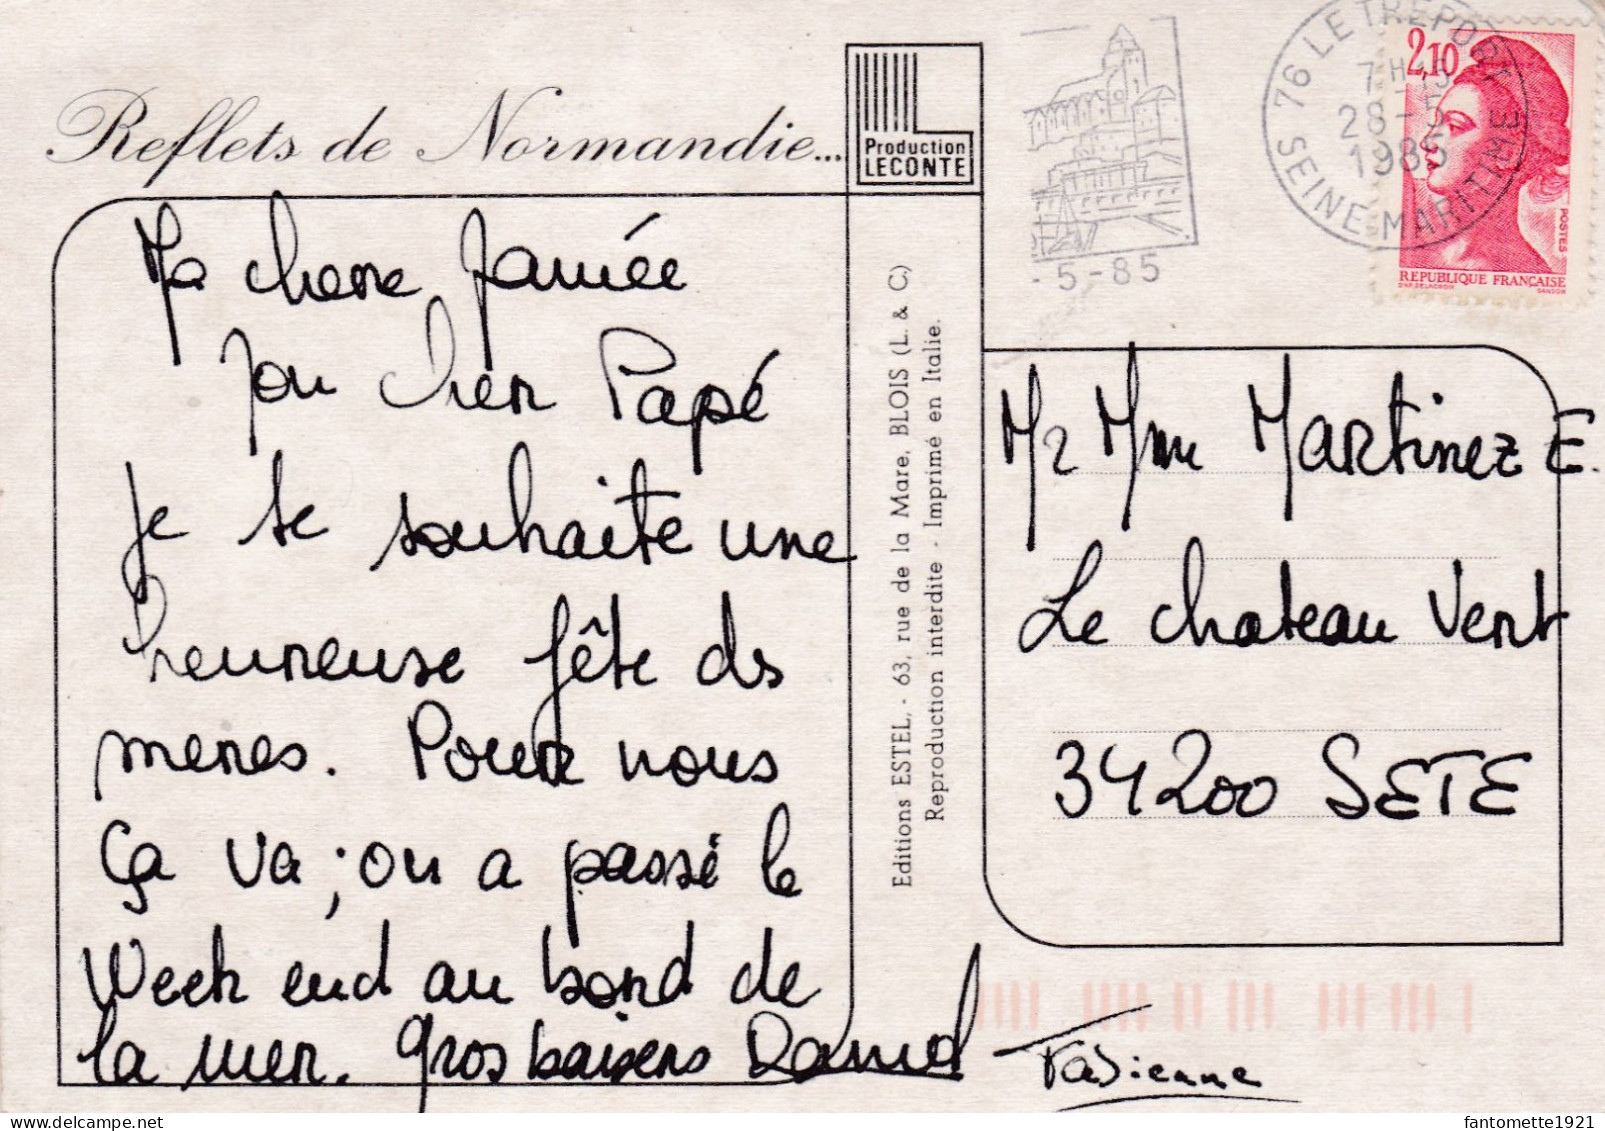 Reflets de Normandie...
Production
LECONTE
Ma chere Jamée
Mon cher Papé
je te souhaite une
heureuse fête ds
meres. Pour nous
ça va ; on a passé le
Week end au bord de
la mer. gros baisers
Fabienne
Editions ESTEL. - 63, rue de la Mare. BLOIS (L. & C.)
Reproduction interdite - Imprimé en Italie.
- 5 - 85
76 LE TREPORT
7H15
28-5
1985
SEINE MARITIME
2,10
POSTES
REPUBLIQUE FRANÇAISE
D'AP. DELACROIX GANDON
Mr Mme Martinez E.
Le chateau Vert
34200 SETE
fantomette1921